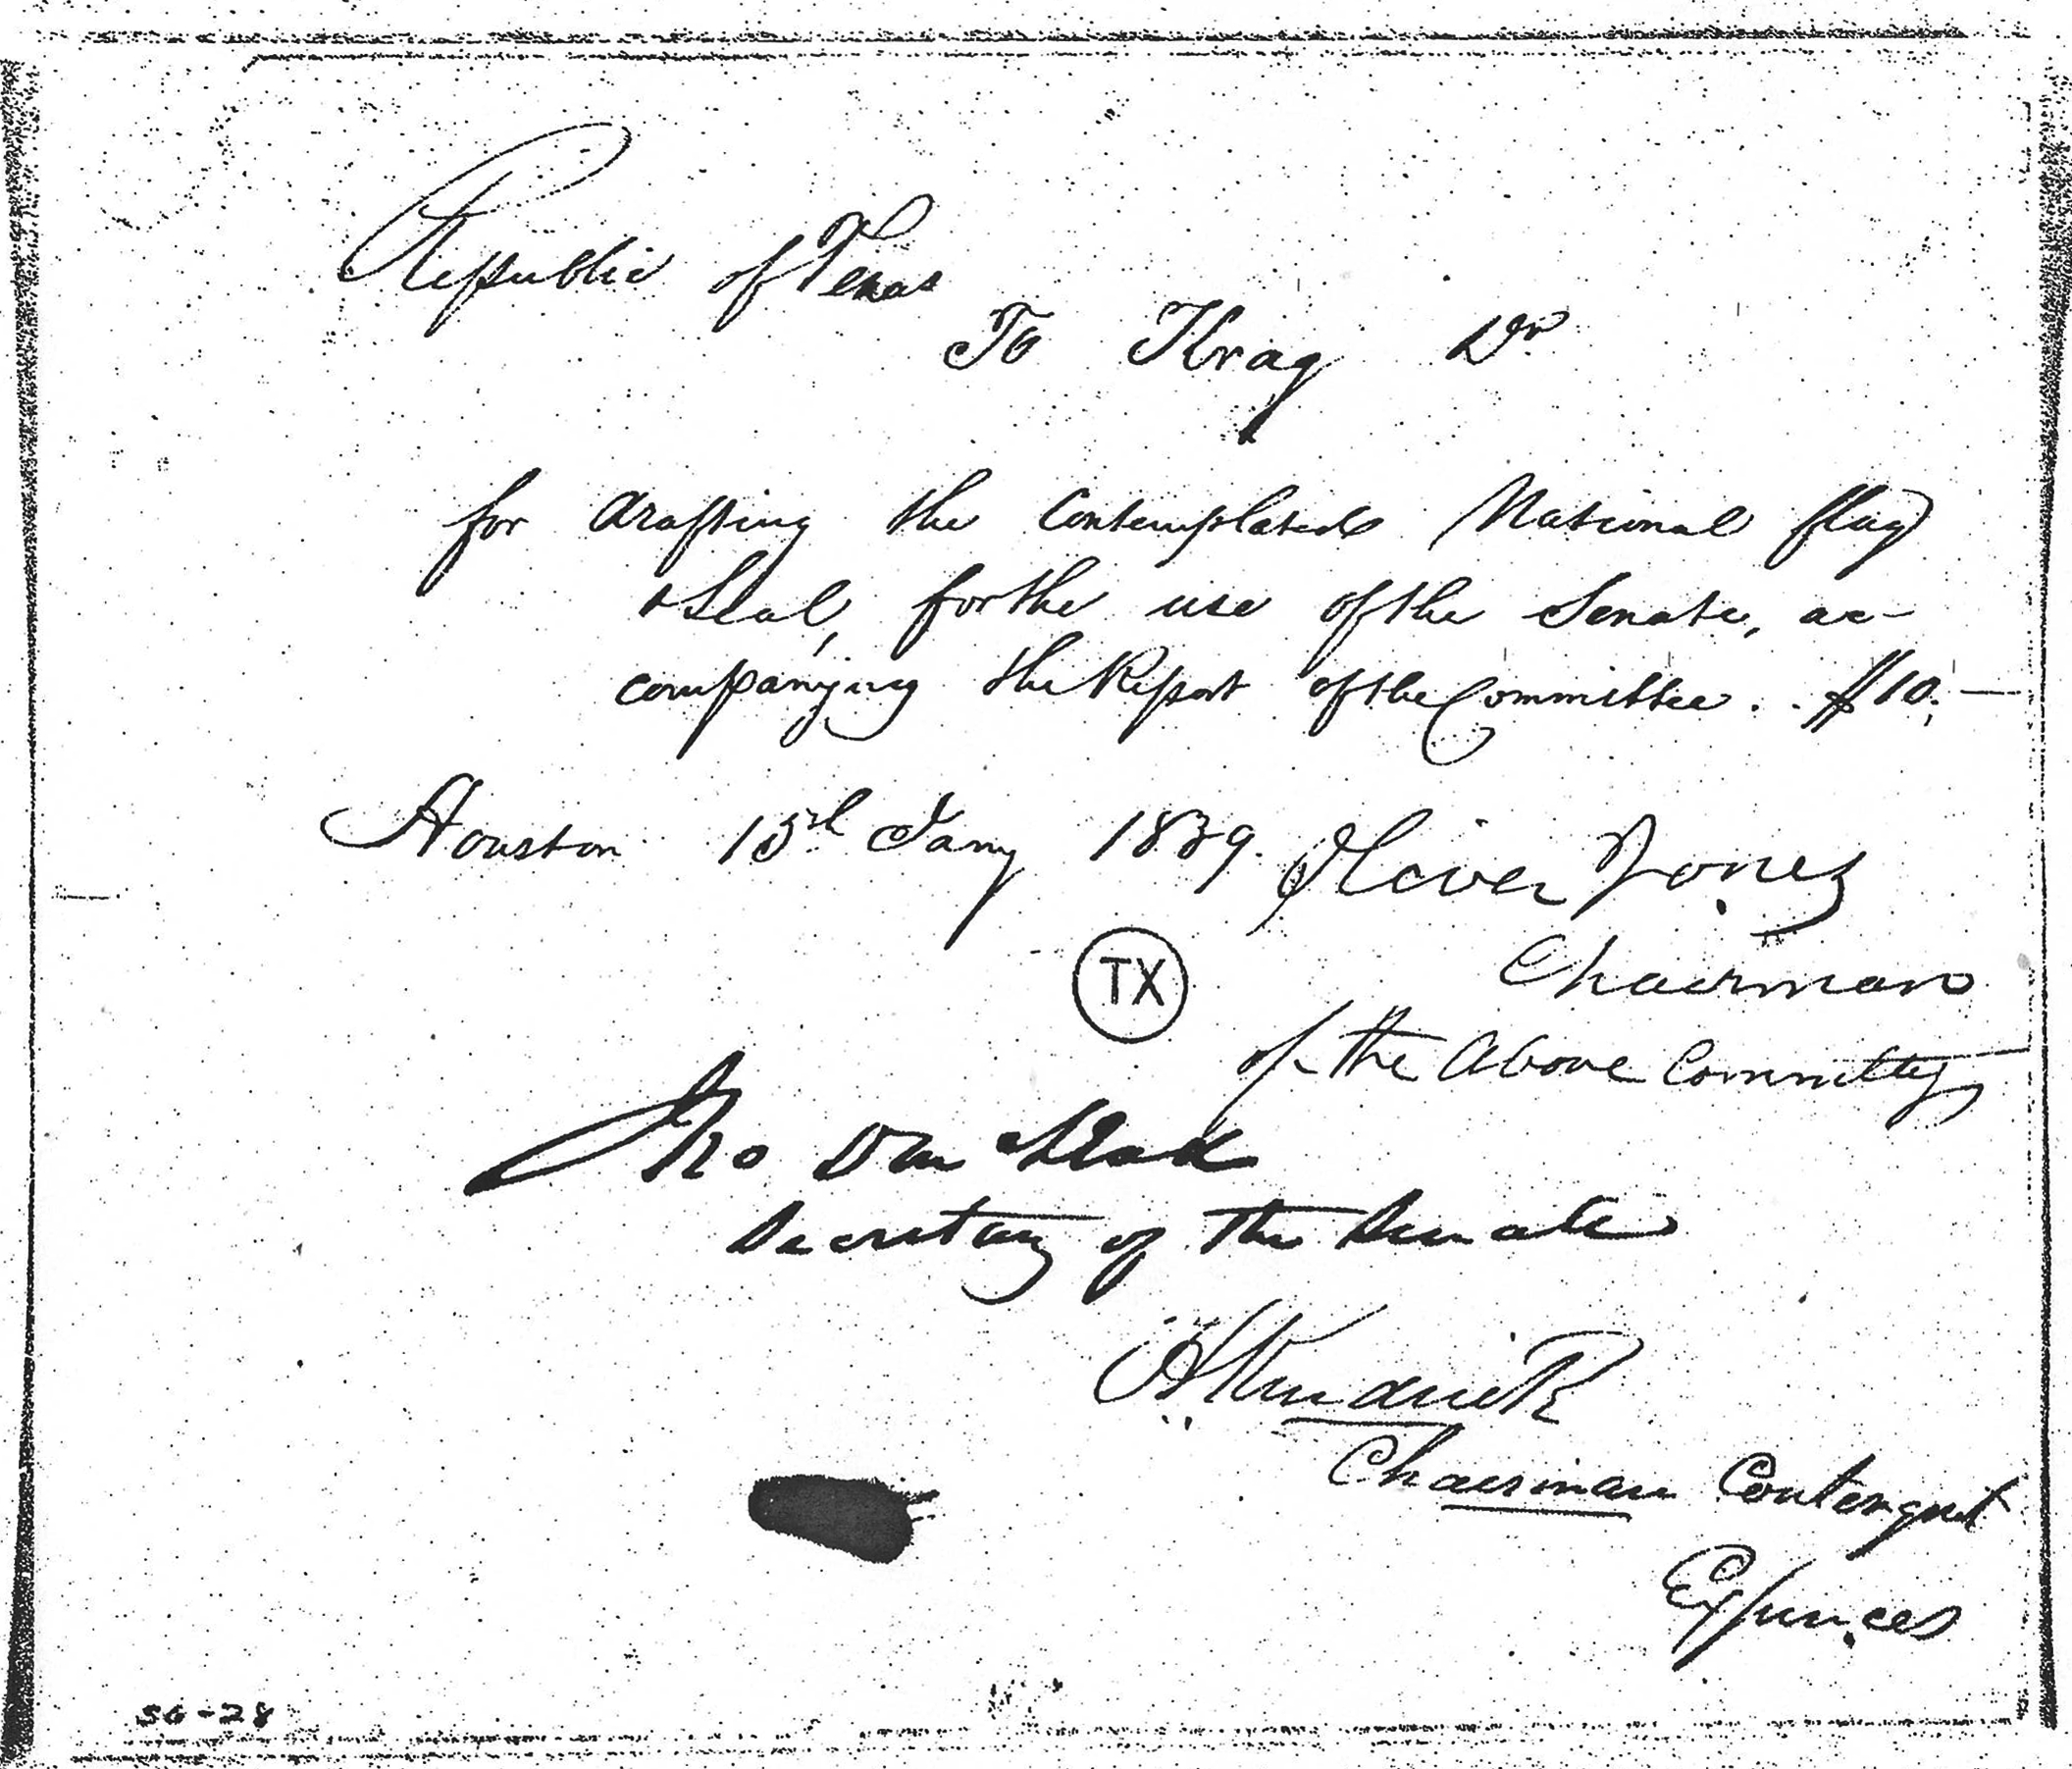 Republic of Texas
To Krag Dr
for drafting the Contemplated National flag
& Seal, for the use of the Senate, ac-
companying the Report of the Committee . . $10.—
Houston 15th Jany 1839. Oliver Jones
Chairman
TX
of the above Committee
Jno
Secretary of the Senate
H Kendrick
Chairman Contengnt
Expences
SG-28